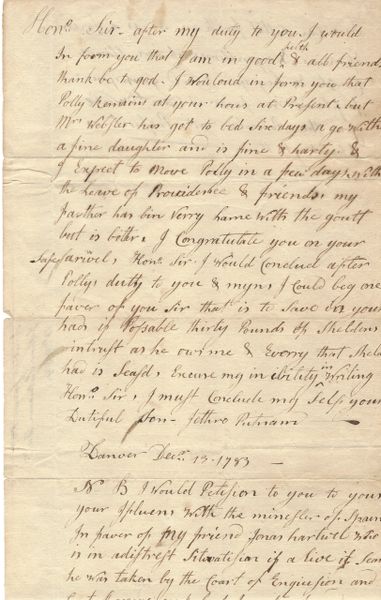 Honᵈ Sir after my duty to you I would
In foom you that I am in good helth & all friends
thank be to god. I Wouloud in form you that
Polly Remains at your hous at Present, but
Mrs Webster has got to bed Six days a go With
a fine daughter and is fine & harty. &
I Expect to Move Polly in a few days With
the Leave of Providence & friends, my
farther has bin Verry Lame With the goutt
but is better, I Congratulate you on your
Safe arivel, Honᵈ Sir I Would Conclud after
Pollys duty to you & myn, I Could beg one
faver of you Sir that is to Save in your
hads if Possable thirty Pounds of Sheldens
intrust as he ows me & Everry that Sheld
had is Seasd, Excuse my in ability in Writing
Honᵈ Sir, I must Conclude my Self your
Dutiful Son - Jethro Putnam
Danver Decr 13 1783
N B I Would Petision to you to yous
your Ifluens With the minester of Spain
In faver of My friend Jonas harl Who
is in adistrest Sitwatision if a live if Son
he was taken by the Court of Enquesion and